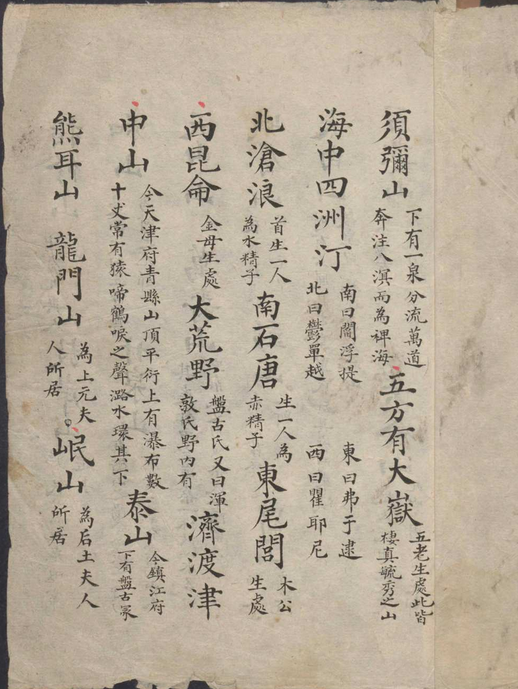 須彌山 下有一泉分流萬道奔注八溟而為裨海 五方有大嶽 五老生處此皆棲真毓秀之山
海中四洲汀 南曰閻浮提 北曰鬱單越 東曰弗于逮 西曰瞿耶尼
北滄浪 首生一人為水精子 南石唐 生一人為赤精子 東尾閭 木公生處
西昆侖 金母生處 大荒野 盤古氏又曰渾敦氏野內有 濟渡津
中山 今天津府青縣山頂平衍上有瀑布數十丈常有猿啼鶴唳之聲潞水環其下 泰山 今鎮江府下有盤古冢
熊耳山 龍門山 為上元夫人所居 岷山 為后土夫人所居